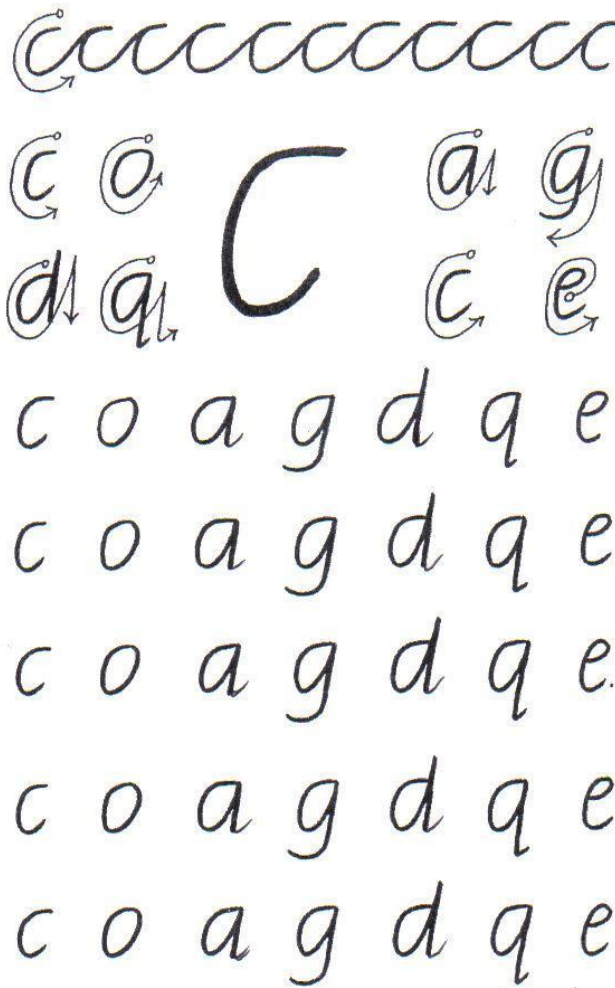 ccccccccccc
c o C a g
d q c e
c o a g d q e
c o a g d q e
c o a g d q e
c o a g d q e
c o a g d q e